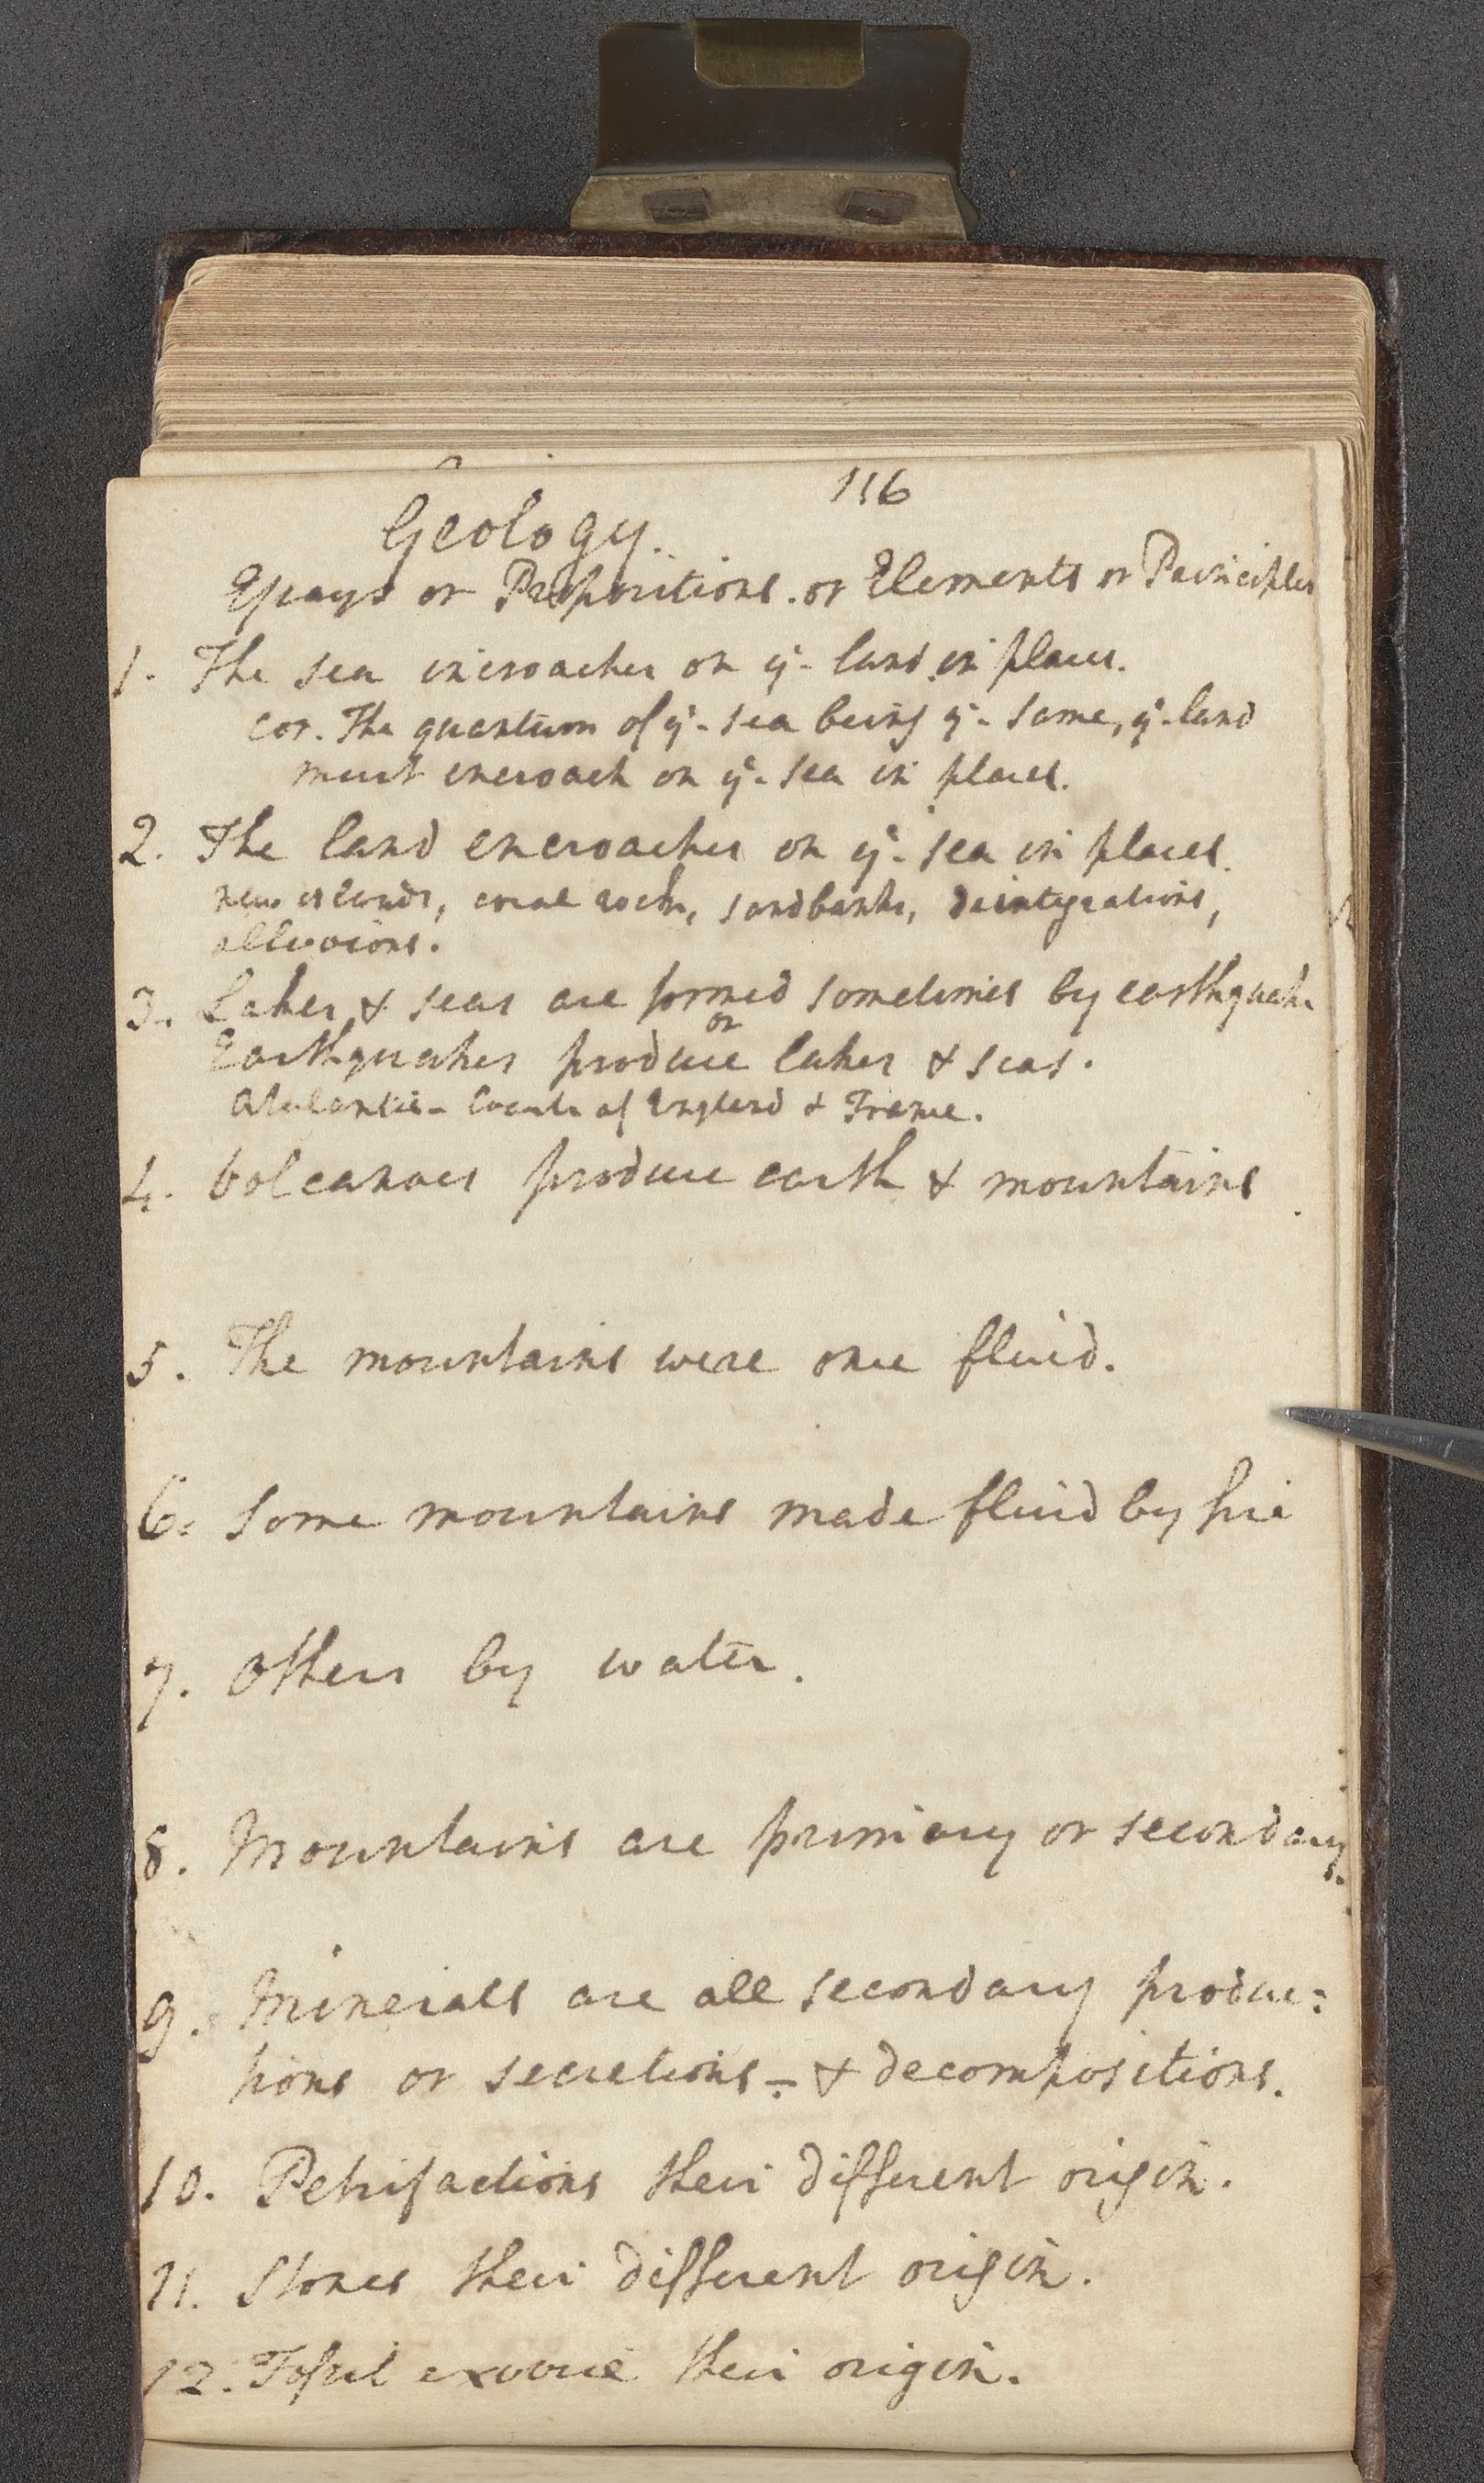 116
Geology.
Essays or Propositions. or Elements or Principles
1. The sea incroaches on ye. land in places.
cor. The quantum of ye. sea being ye. same, ye. land
must encroach on ye. sea in places.
2. The land encroaches on ye. sea in places.
new islands, coral rocks, sandbanks, disintegrations,
alluvions.
3. Lakes & seas are formed sometimes by earthquakes
or
Earthquakes produce lakes & seas.
Atalantis - Coasts of England & France.
4. Volcanoes produce earth & mountains
5. The mountains were once fluid.
6. Some mountains made fluid by fire
7. Others by water.
8. Mountains are primary or secondary.
9. Minerals are all secondary produc:
tions or secretions - & decompositions.
10. Petrifactions their different origin.
11. Stones their different origin.
12. Fossil exuviæ their origin.